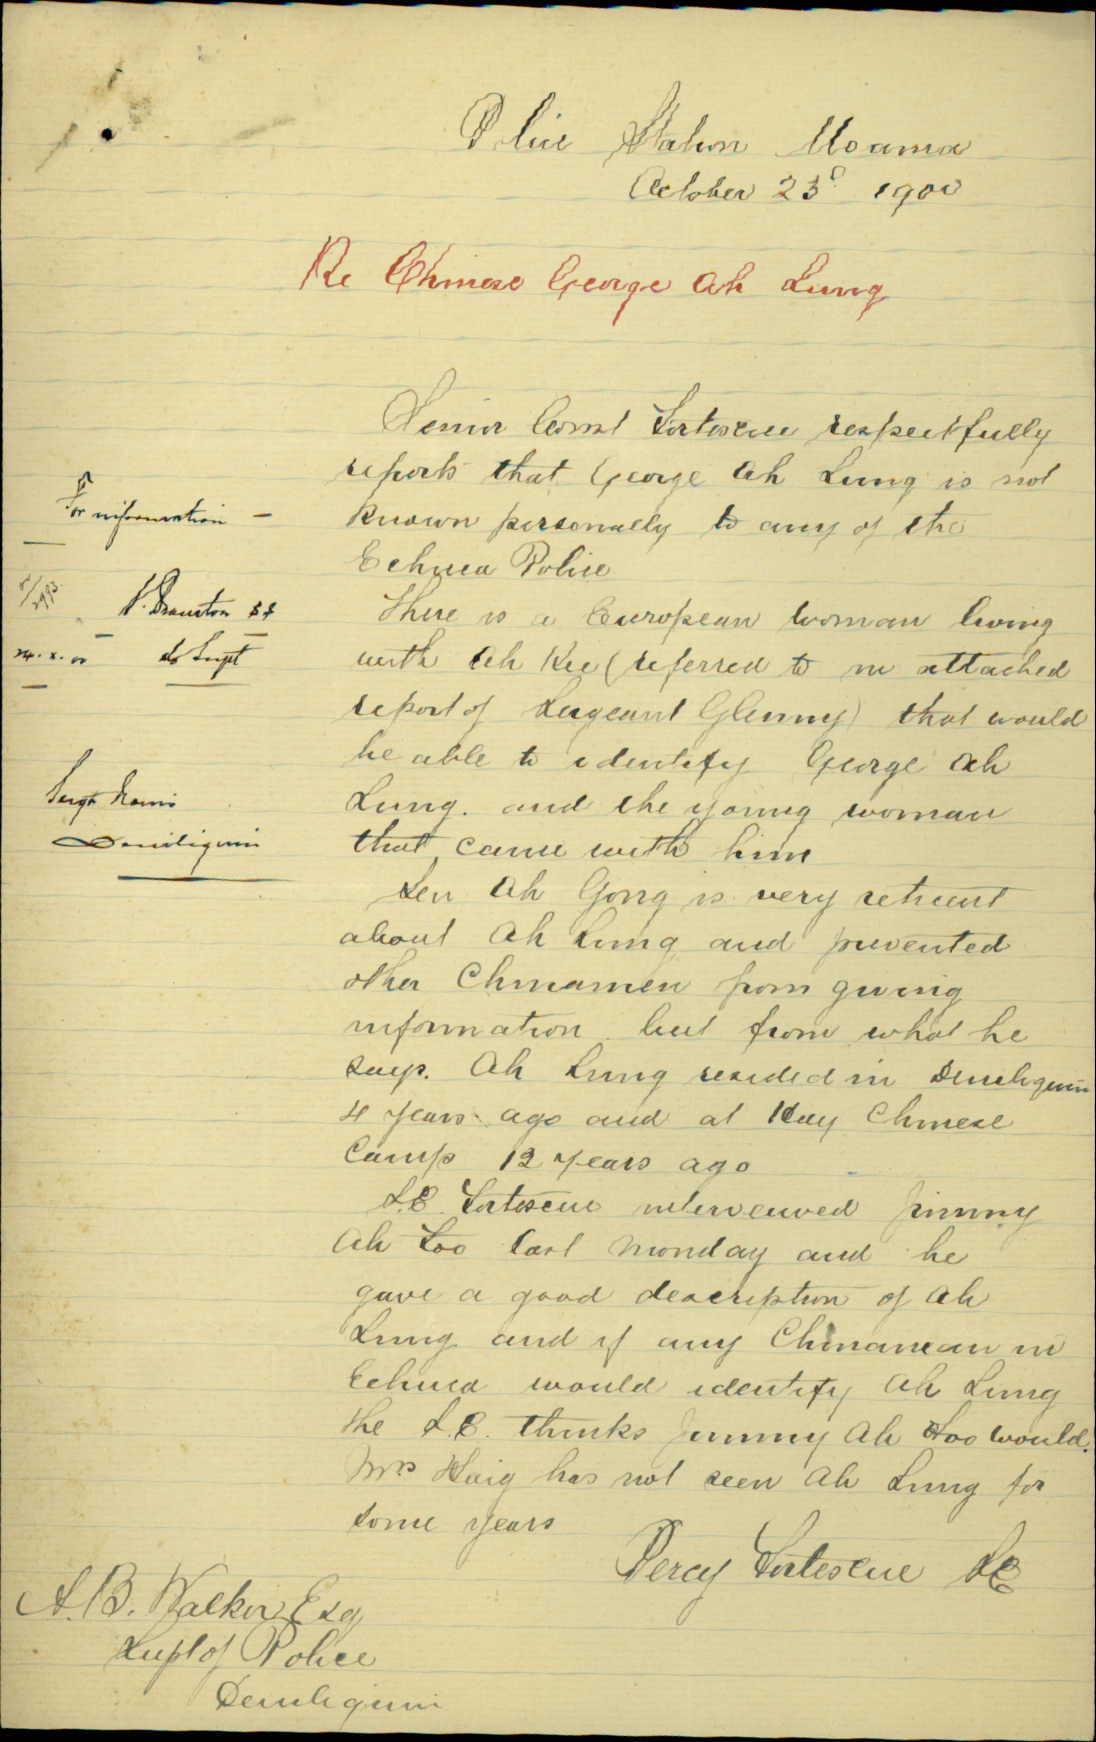 Police Station Moama
October 23d 1900
Re Chinese George Ah Lung
Senior Const Fortescue respectfully
reports that George Ah Lung is not
known personally to any of the
Echuca Police
There is a European woman living
with Ah Kee (referred to in attached
report of Sergeant Glenny) that would
be able to identify George Ah
Lung. and the young woman
that came with him
Len Ah Gong is very reticent
about Ah Lung and prevented
other Chinamen from giving
information but from what he
says. Ah Lung resided in Deniliquin
4 years ago and at Hay Chinese
Camp 12 years ago
S.C. Fortescue interviewed Jimmy
Ah Loo last Monday and he
gave a good description of Ah
Lung and if any Chinaman in
Echuca would identify Ah Lung
the S.C. thinks Jimmy Ah Hoo would.
Mrs Haig has not seen Ah Lung for
some years
Percy Fortescue SC
For information —
24.x.00
for Supt
Sergt
Deniliquin
A. B. Walker Esq
Supt of Police
Deniliquin